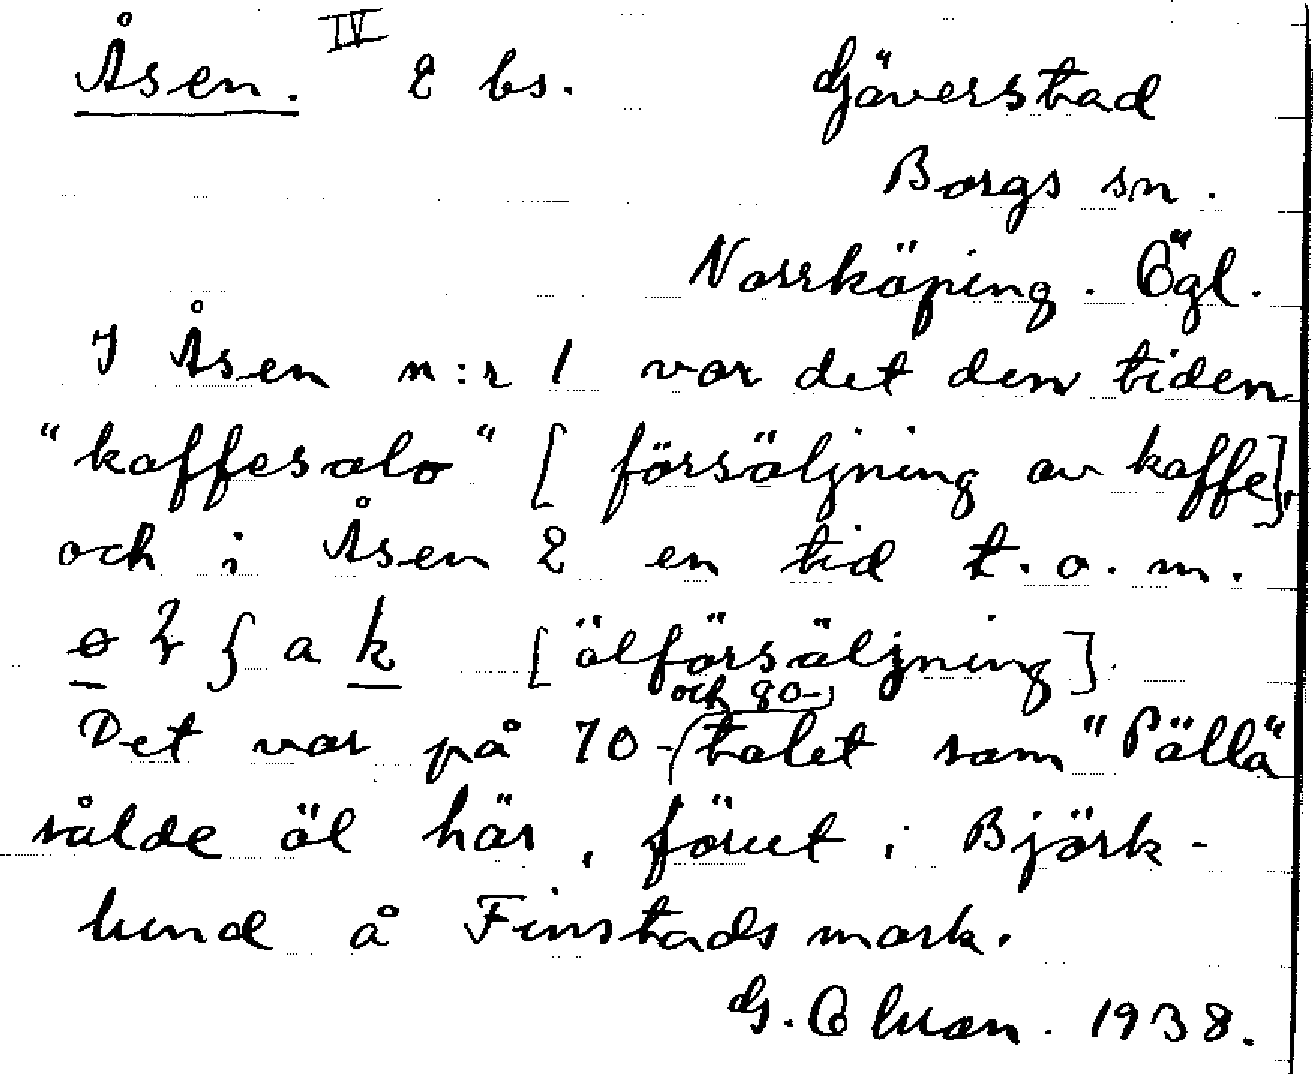 Åsen. IV 2 bs. Gäverstad
Borgs sn.
Norrköping. Ögl.
I Åsen n:r 1 var det den tiden
"kaffesalo" [försäljning av kaffe],
och i Åsen 2 en tid t.o.m.
[ölförsäljning].
Det var på 70- och 80-talet som "Pällä"
sålde öl här, förut i Björk-
lund å Finstads mark.
G. 1938.